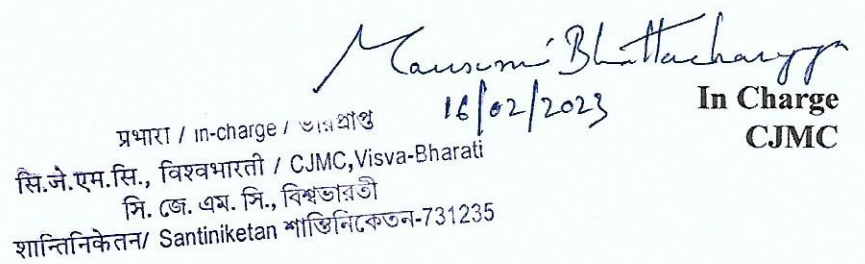 Mausumi Bhattacharyya
16/02/2023
In Charge
CJMC
प्रभारी / in-charge / ভারপ্রাপ্ত
सि.जे.एम.सि., विश्वभारती / CJMC,Visva-Bharati
সি. জে. এম. সি., বিশ্বভারতী
शान्तिनिकेतन/ Santiniketan শান্তিনিকেতন-731235